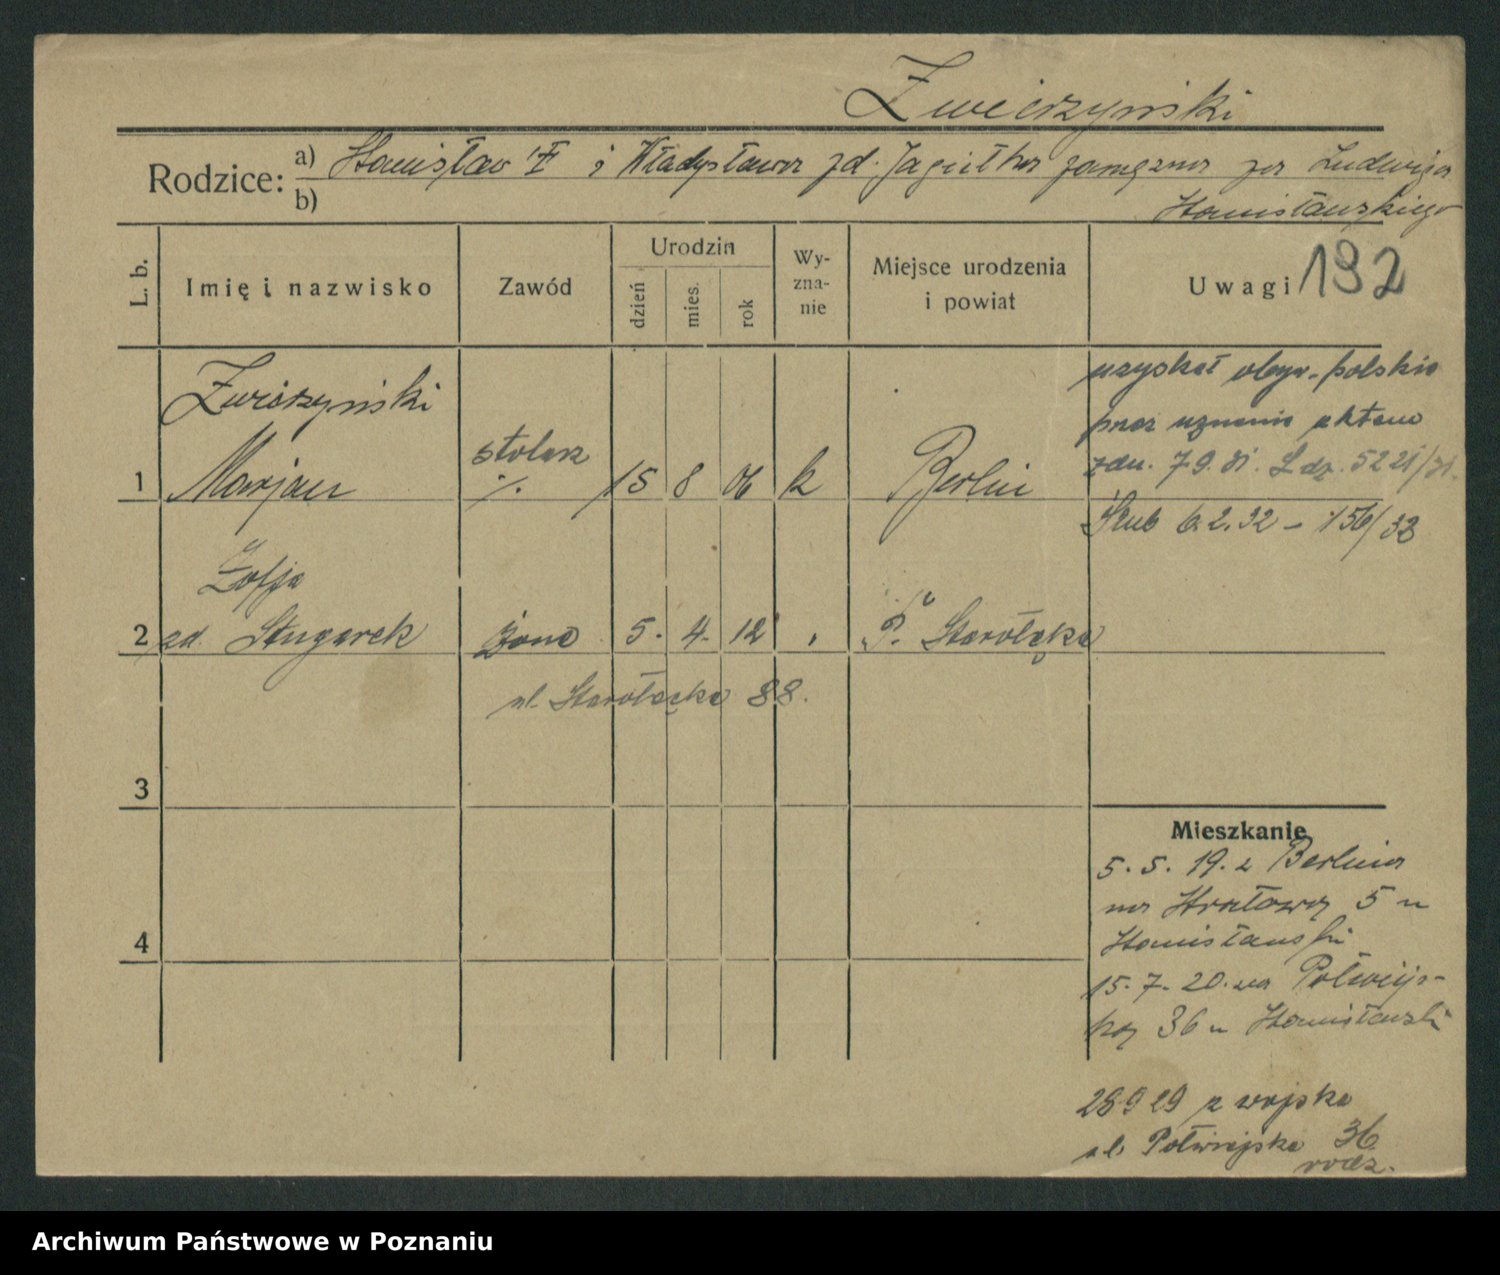 Zwierzyński
Rodzice: a) Stanisław Z i Władysława zd. Jagiełka zamężna za Ludwiga
b) Stanisławskiego
L. b. Imię i nazwisko Zawód Urodzin dzień mies. rok Wyznanie Miejsce urodzenia i powiat Uwagi 132
Zwierzyński
uzyskał obyw. polskie
przez uznanie aktem
1 Marjan stolarz 15 8 06 k Berlin
zdn. 7.9.31. Ldz. 5221/31.
Ślub 6.2.32 – 156/32
Zofja
2 zd. Stugarek żona 5. 4. 12 P. Starołęka
ul. Starołęcka 88.
3
Mieszkanie
5. 5. 19. z Berlina
na Strałową 5 u
4
Stanisławski
15. 7. 20. na Półwiejs-
ką 36 u Stanisławski
28 9 29 z wojska
ul. Półwiejska 36
rodz.
Archiwum Państwowe w Poznaniu